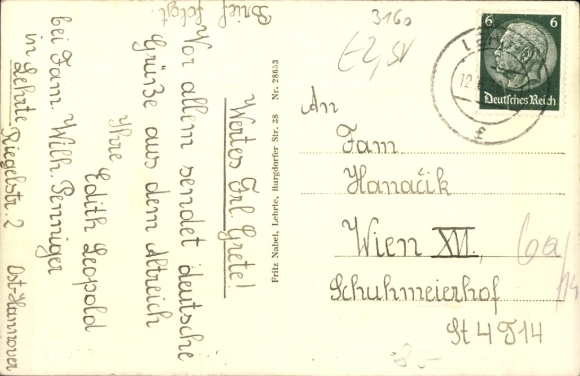 Wertes Frl. Grete!
Vor allem sendet deutsche
Grüße aus dem Altreich
Ihre
Edith Leopold
bei Fam. Wilh. Penniger
in Lehrte Riegelstr. 2 Ost-Hannover
Brief folgt
Fritz Nabel, Lehrte, Burgdorfer Str. 38 Nr. 28653
3160
6 6
Deutsches Reich
12.
An
Fam
Hanačik
Wien XVI.,
Schuhmeierhof
St 4 T 14
6a/14